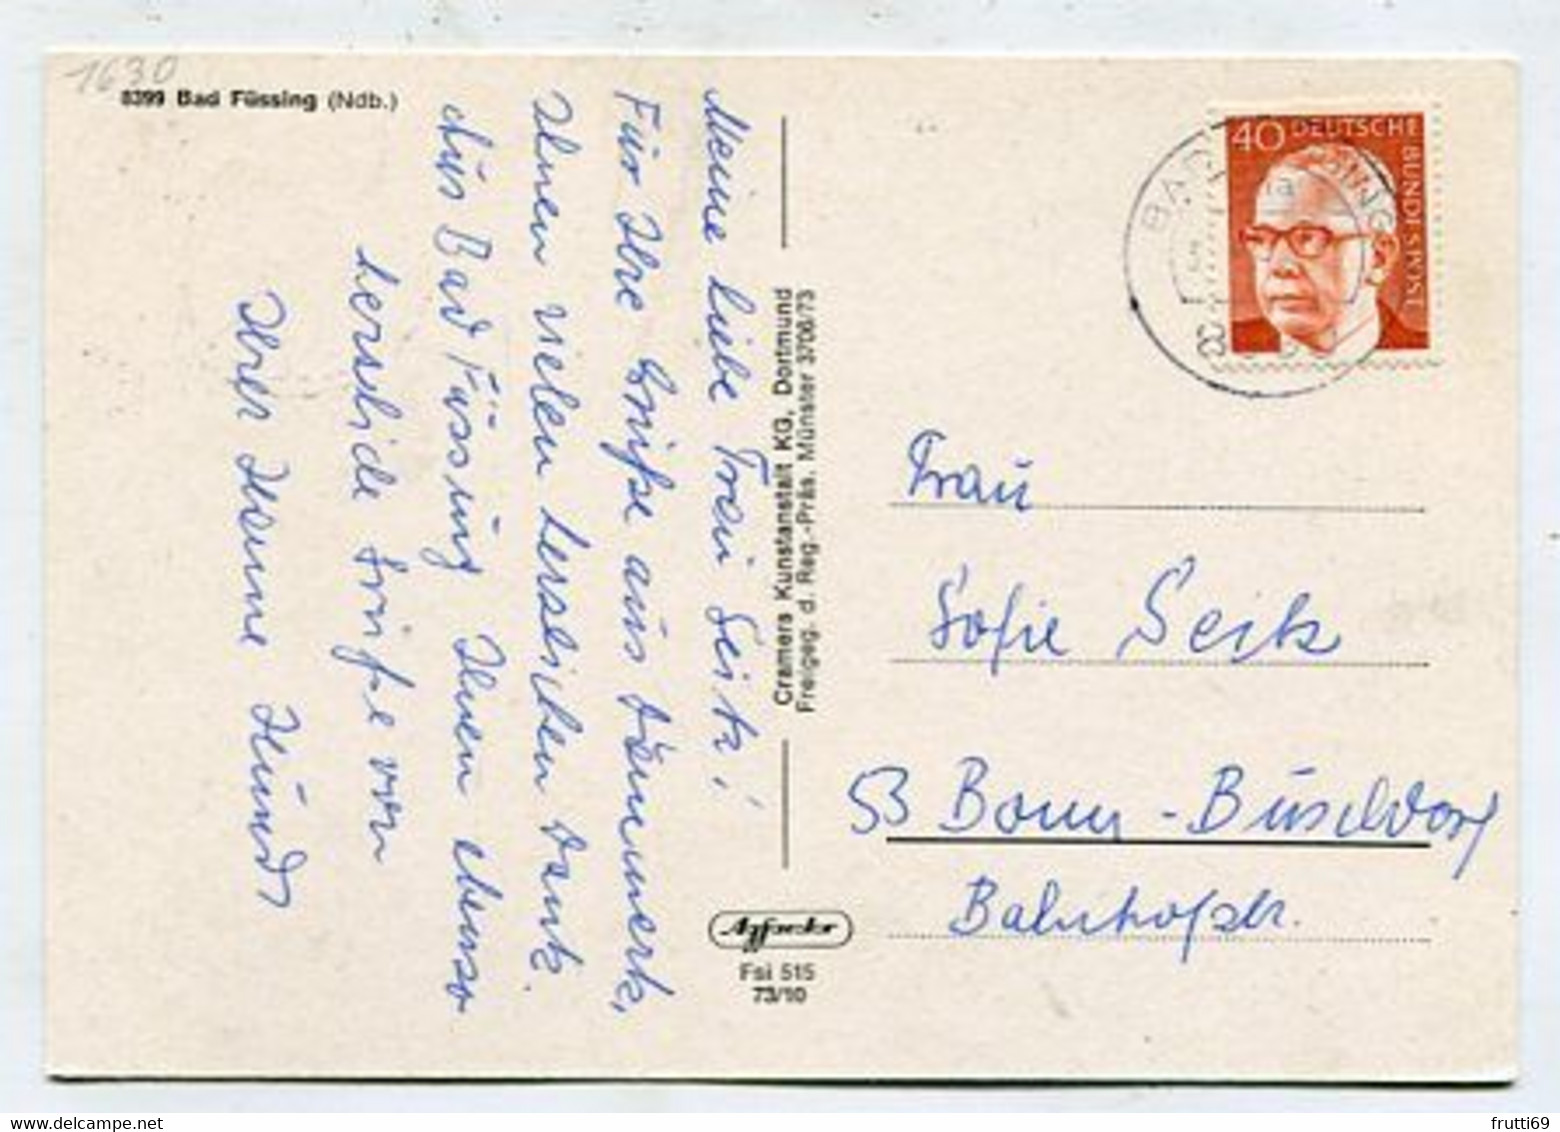 1630
8399 Bad Füssing (Ndb.)
Meine liebe Frau Seitz!
Für Ihre Grüße aus Dänemark,
Ihnen vielen herzlichen Dank.
Aus Bad Füssing Ihnen ebenso
herzliche Grüße von
Ihrer Hanne Hund
Cramers Kunstanstalt KG, Dortmund
Freigeg. d. Reg.-Präs. Münster 3708/73
Fsi 515
73/10
40 DEUTSCHE BUNDESPOST
BAD FÜSSING
Frau
Sofie Seitz
53 Bonn-Buschdorf
Bahnhofstr.
www.delcampe.net
frutti69